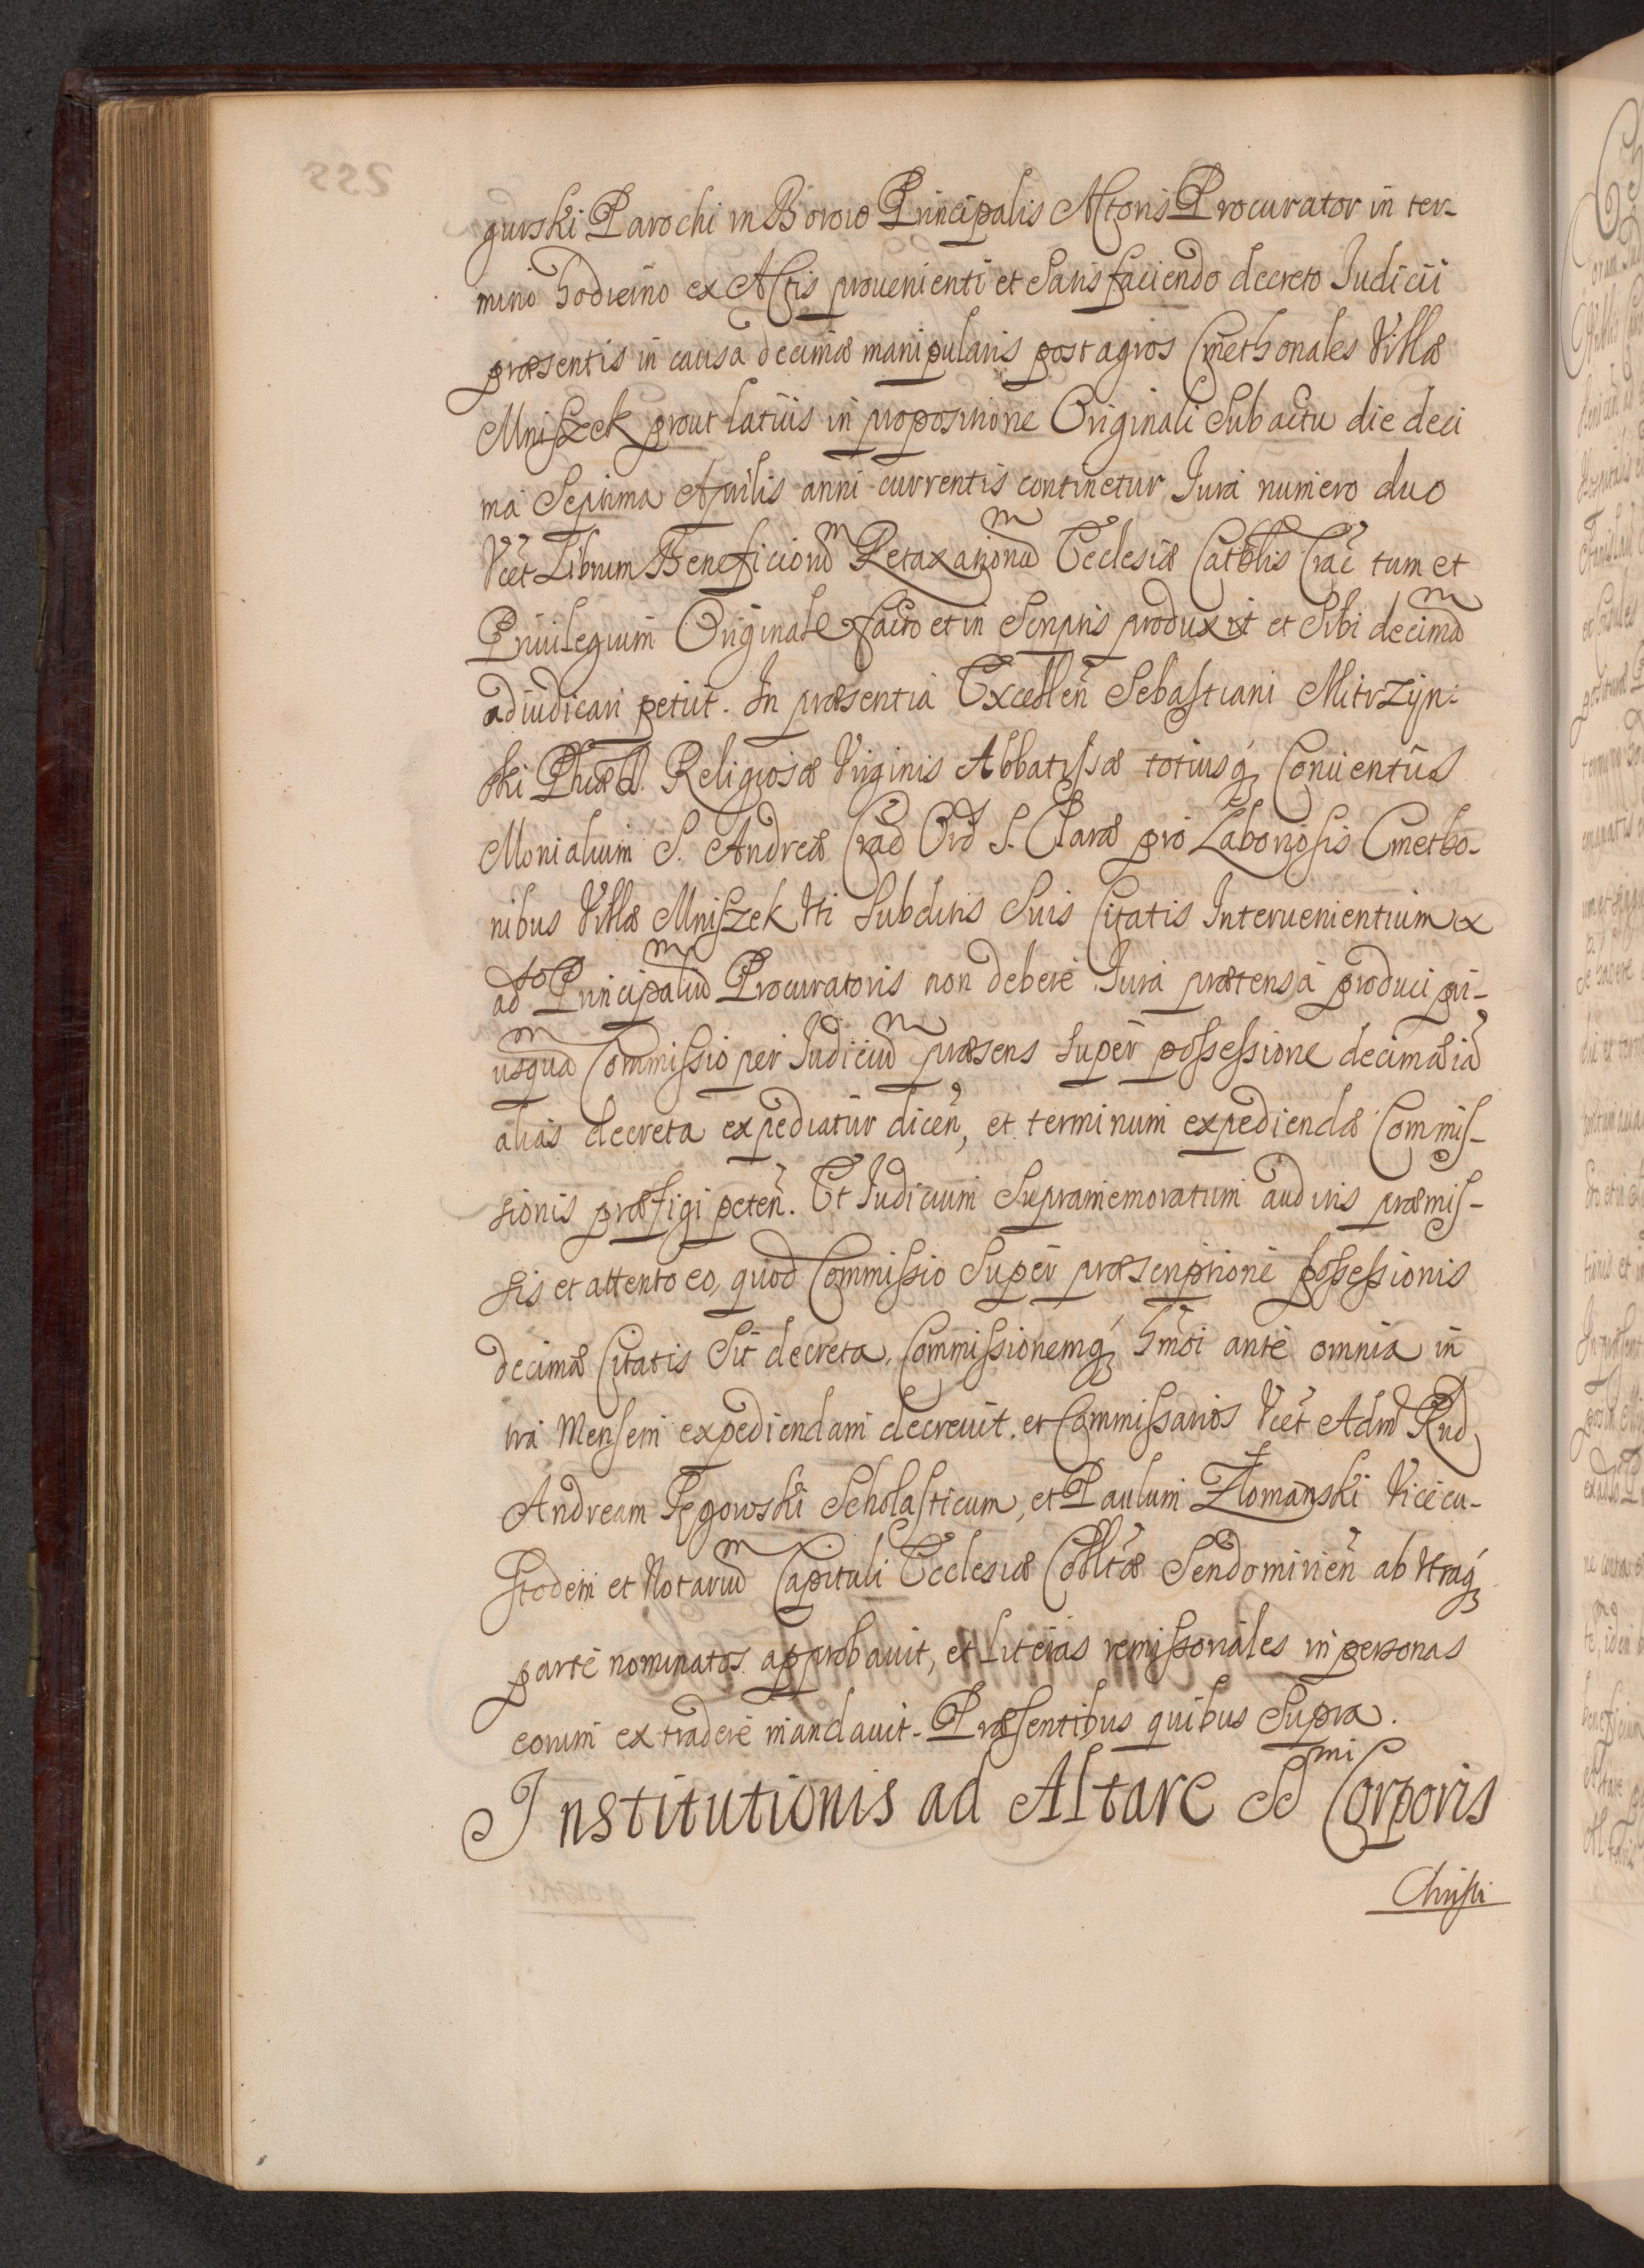 gurski Parochi in Borow Principalis Actoris Procurator in ter-
mino hodierno ex Actis prouenienti et Satisfaciendo decreto Iudicii
præsentis in causa decimæ manipularis post agros Cmethonales Villæ
Mniszek prout latius in propositione Originali Sub actu die deci
ma Septima Aprilis anni currentis continetur Iura numero duo
Vcet Librum Beneficioru͂m Retaxationu͂m Ecclesiæ Cathlis Crac̃ tum et
Priuilegium Originale facto et in Scriptis produxit et Sibi decima͂m
adiudicari petiit. In præsentia Excellen̄ Sebastiani Mitrzyn-
ski Religiosæ Virginis Abbatissæ totiusq́ Conuentus
Monialium S. Andreæ Crac̃ Ord S. Claræ pro Laboriosis Cmetho-
nibus Villæ Mniszek Vti Subditis Suis Citatis Interuenientium ex
adso Principaliu͂m Procuratoris non debere Iura prætensa produci pri-
usqua͂m Commissio per Iudiciu͂m præsens super possessione decimaria
alias decreta expediatur dicen̄, et terminum expediendæ Commis-
sionis præfigi peten̄. Et Iudicium Supramemoratum auditis præmis-
sis et attento eo, quod Commissio Super præscriptione possessionis
decimæ Citatis Sit decreta, Commissionemq́ hm̃oi ante omnia in
tra Mensem expediendam decreuit. et Commissarios Vcet Adm Rnd
Andream Pęgowski Scholasticum, et Paulum Złomanski Vicecu-
stodem et Notariu͂m Capituli Ecclesiæ Collt̃æ Sendomirien̄ ab Vtraq́
parte nominatos approbauit, et Literas remissoriales in personas
eorum extradere mandauit. Præsentibus quibus Supra.
Institutionis ad Altare SSmi Corporis
Christi